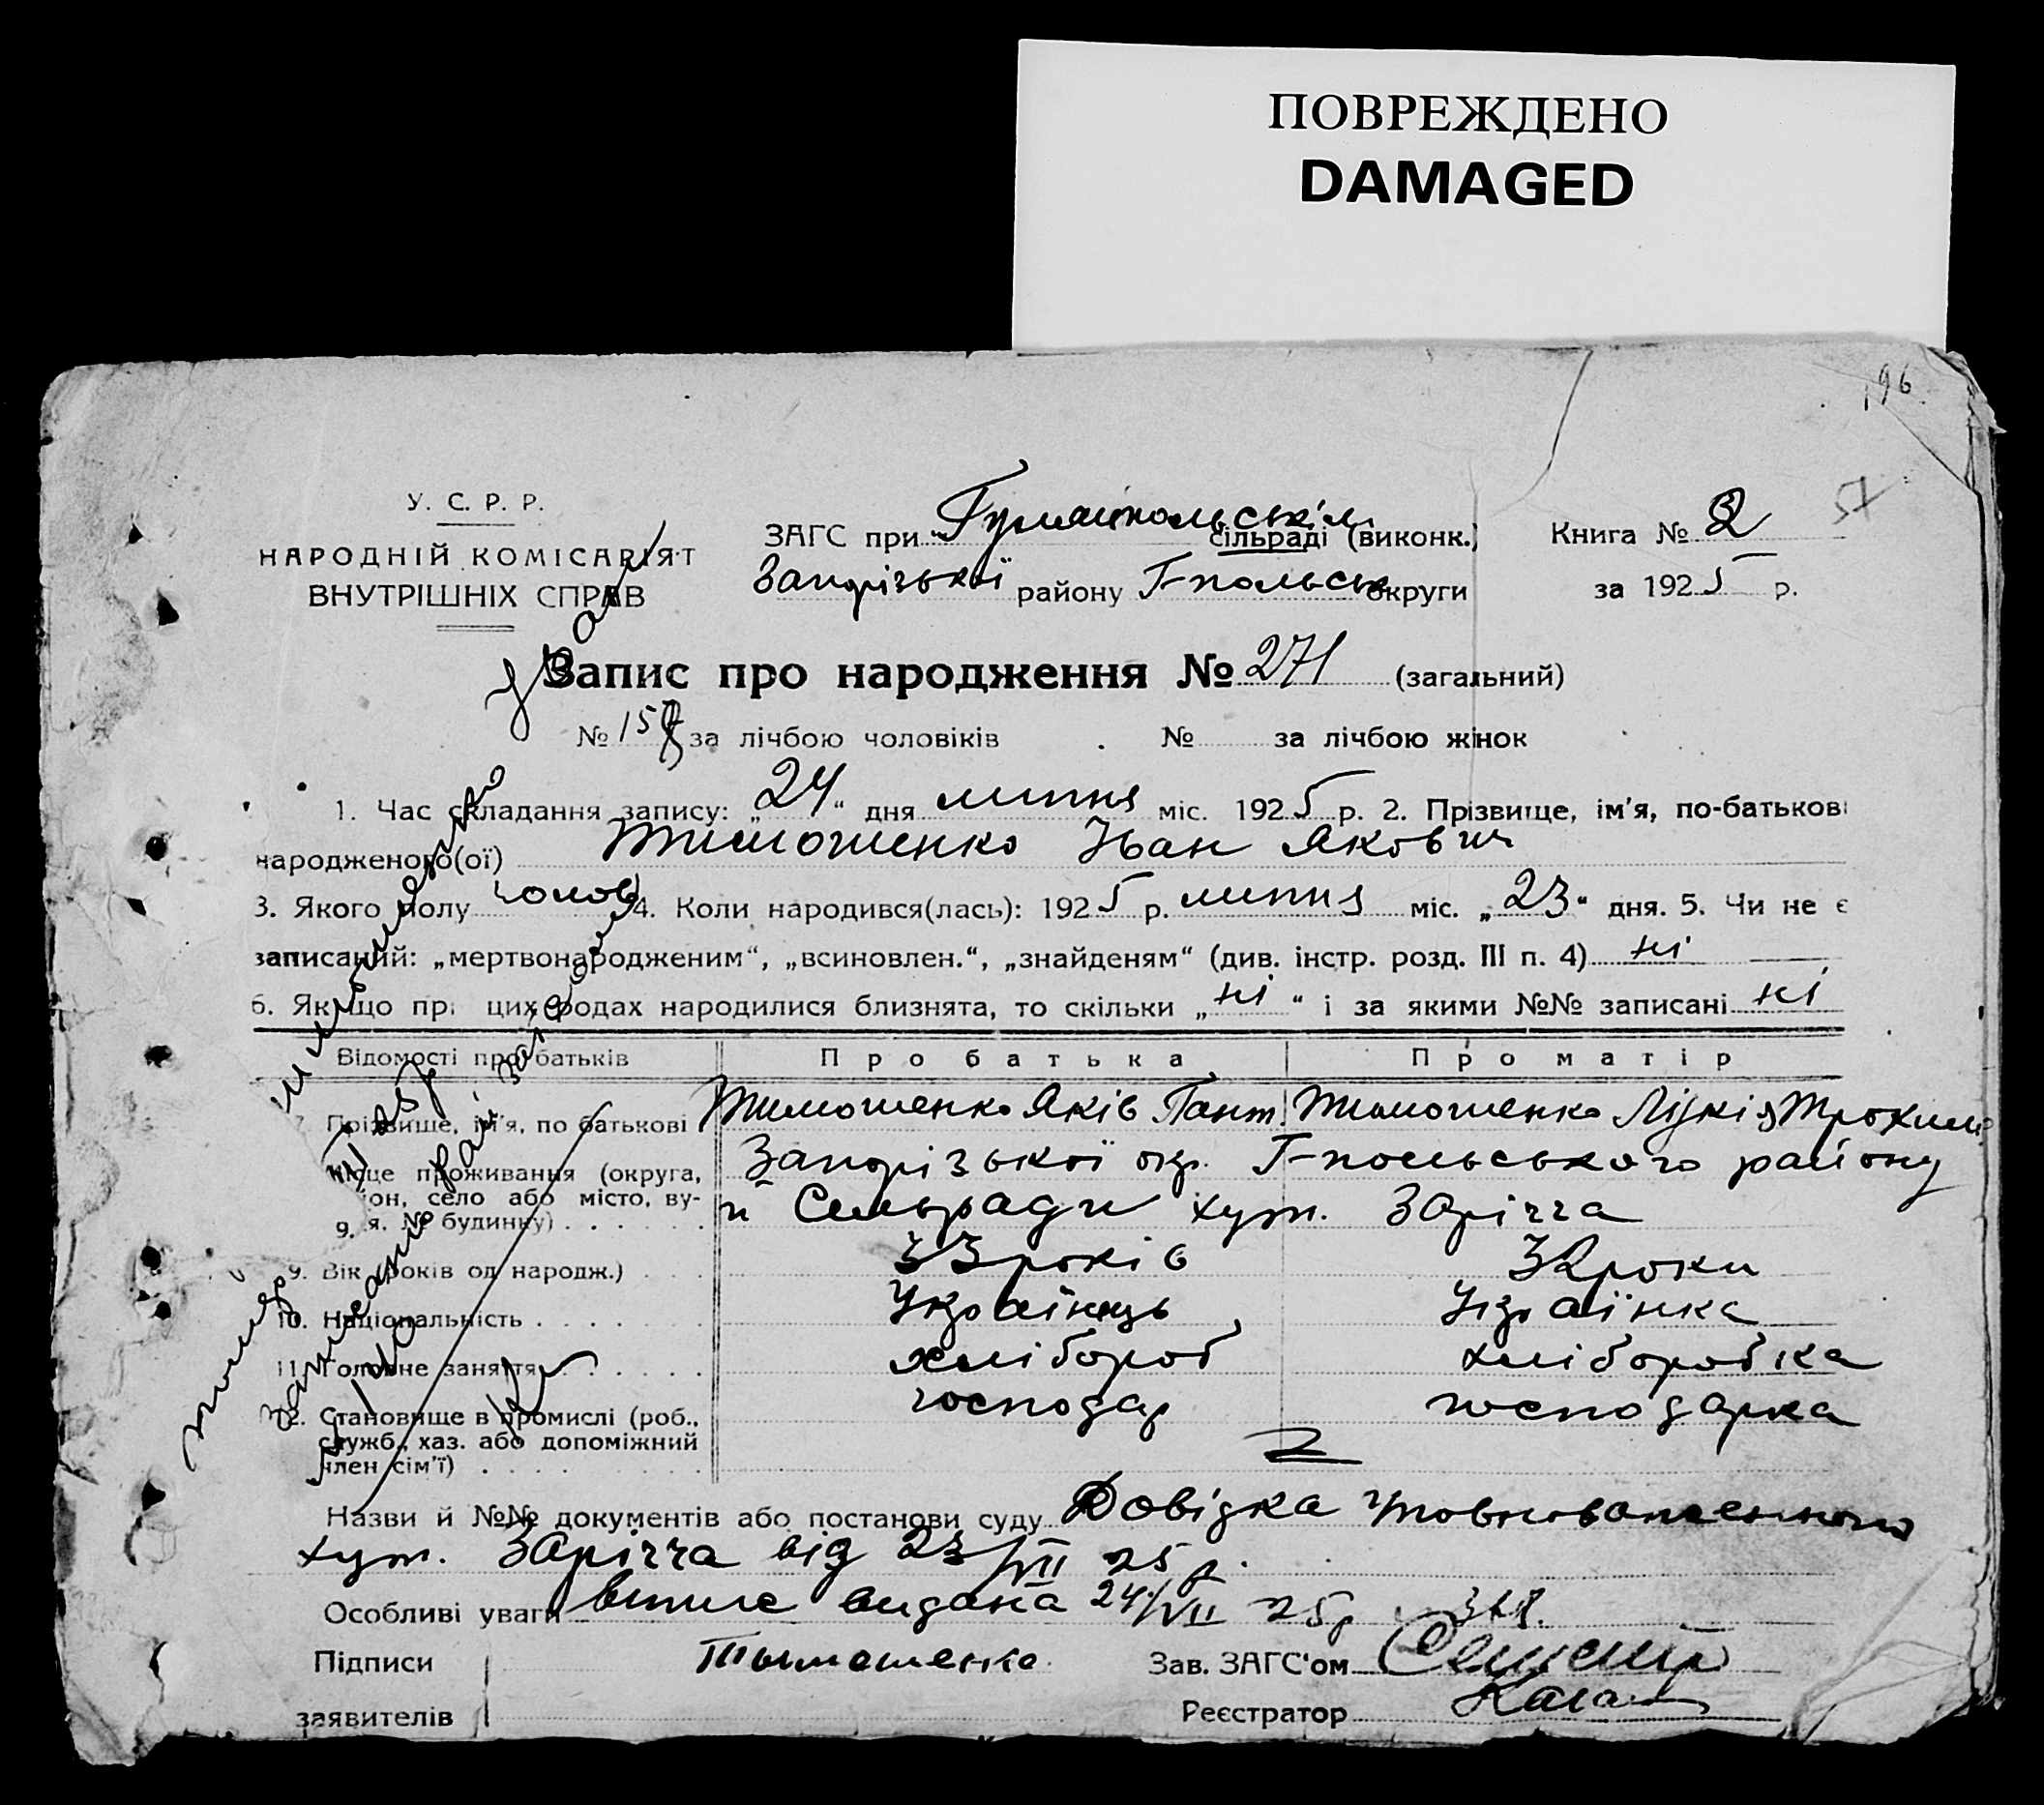 ПОВРЕЖДЕНО
DAMAGED
196
57
У. С. Р. Р.
НАРОДНІЙ КОМІСАРІЯТ
ВНУТРІШНІХ СПРАВ
ЗАГС при Гуляйпольській сільраді (виконк.)
Запорізької району Г-польськ округи
Книга № 2
за 1925 р.
Запис про народження № 271 (загальний)
№ 157 за лічбою чоловіків № за лічбою жінок
1. Час складання запису: „24“ дня липня міс. 1925 р. 2. Прізвище, ім'я, по-батькові
народженого(ої) Тимошенко Іван Якович
3. Якого полу чолов 4. Коли народився(лась): 1925 р. липня міс. „23“ дня. 5. Чи не є
записаний: „мертвонародженим“, „всиновлен.“, „знайденям“ (див. інстр. розд. III п. 4) ні
6. Якщо при цих родах народилися близнята, то скільки „ні“ і за якими №№ записані ні
Відомості про батьків Про батька Про матір
7. Прізвище, ім'я, по батькові Тимошенко Яків Пант. Тимошенко Трохим
проживання (округа, Запорізької окр. Г-польського району
село або місто, ву-
№ будинку) Сельради хут. Зарічча
9. Вік (років од народж.) 33 років 32 роки
10. Національність Українець Українка
11. Головне заняття хлібороб хліборобка
12. Становище в промислі (роб., господар господарка
служб., хаз. або допоміжний
член сім'ї)
2
Назви й №№ документів або постанови суду Довідка уповноваженного
хут. Зарічча від 23/VII 25 р.
Особливі уваги випис видана 24/VII 25р
Підписи
заявителів
Тымошенко
Зав. ЗАГС'ом
Реєстратор